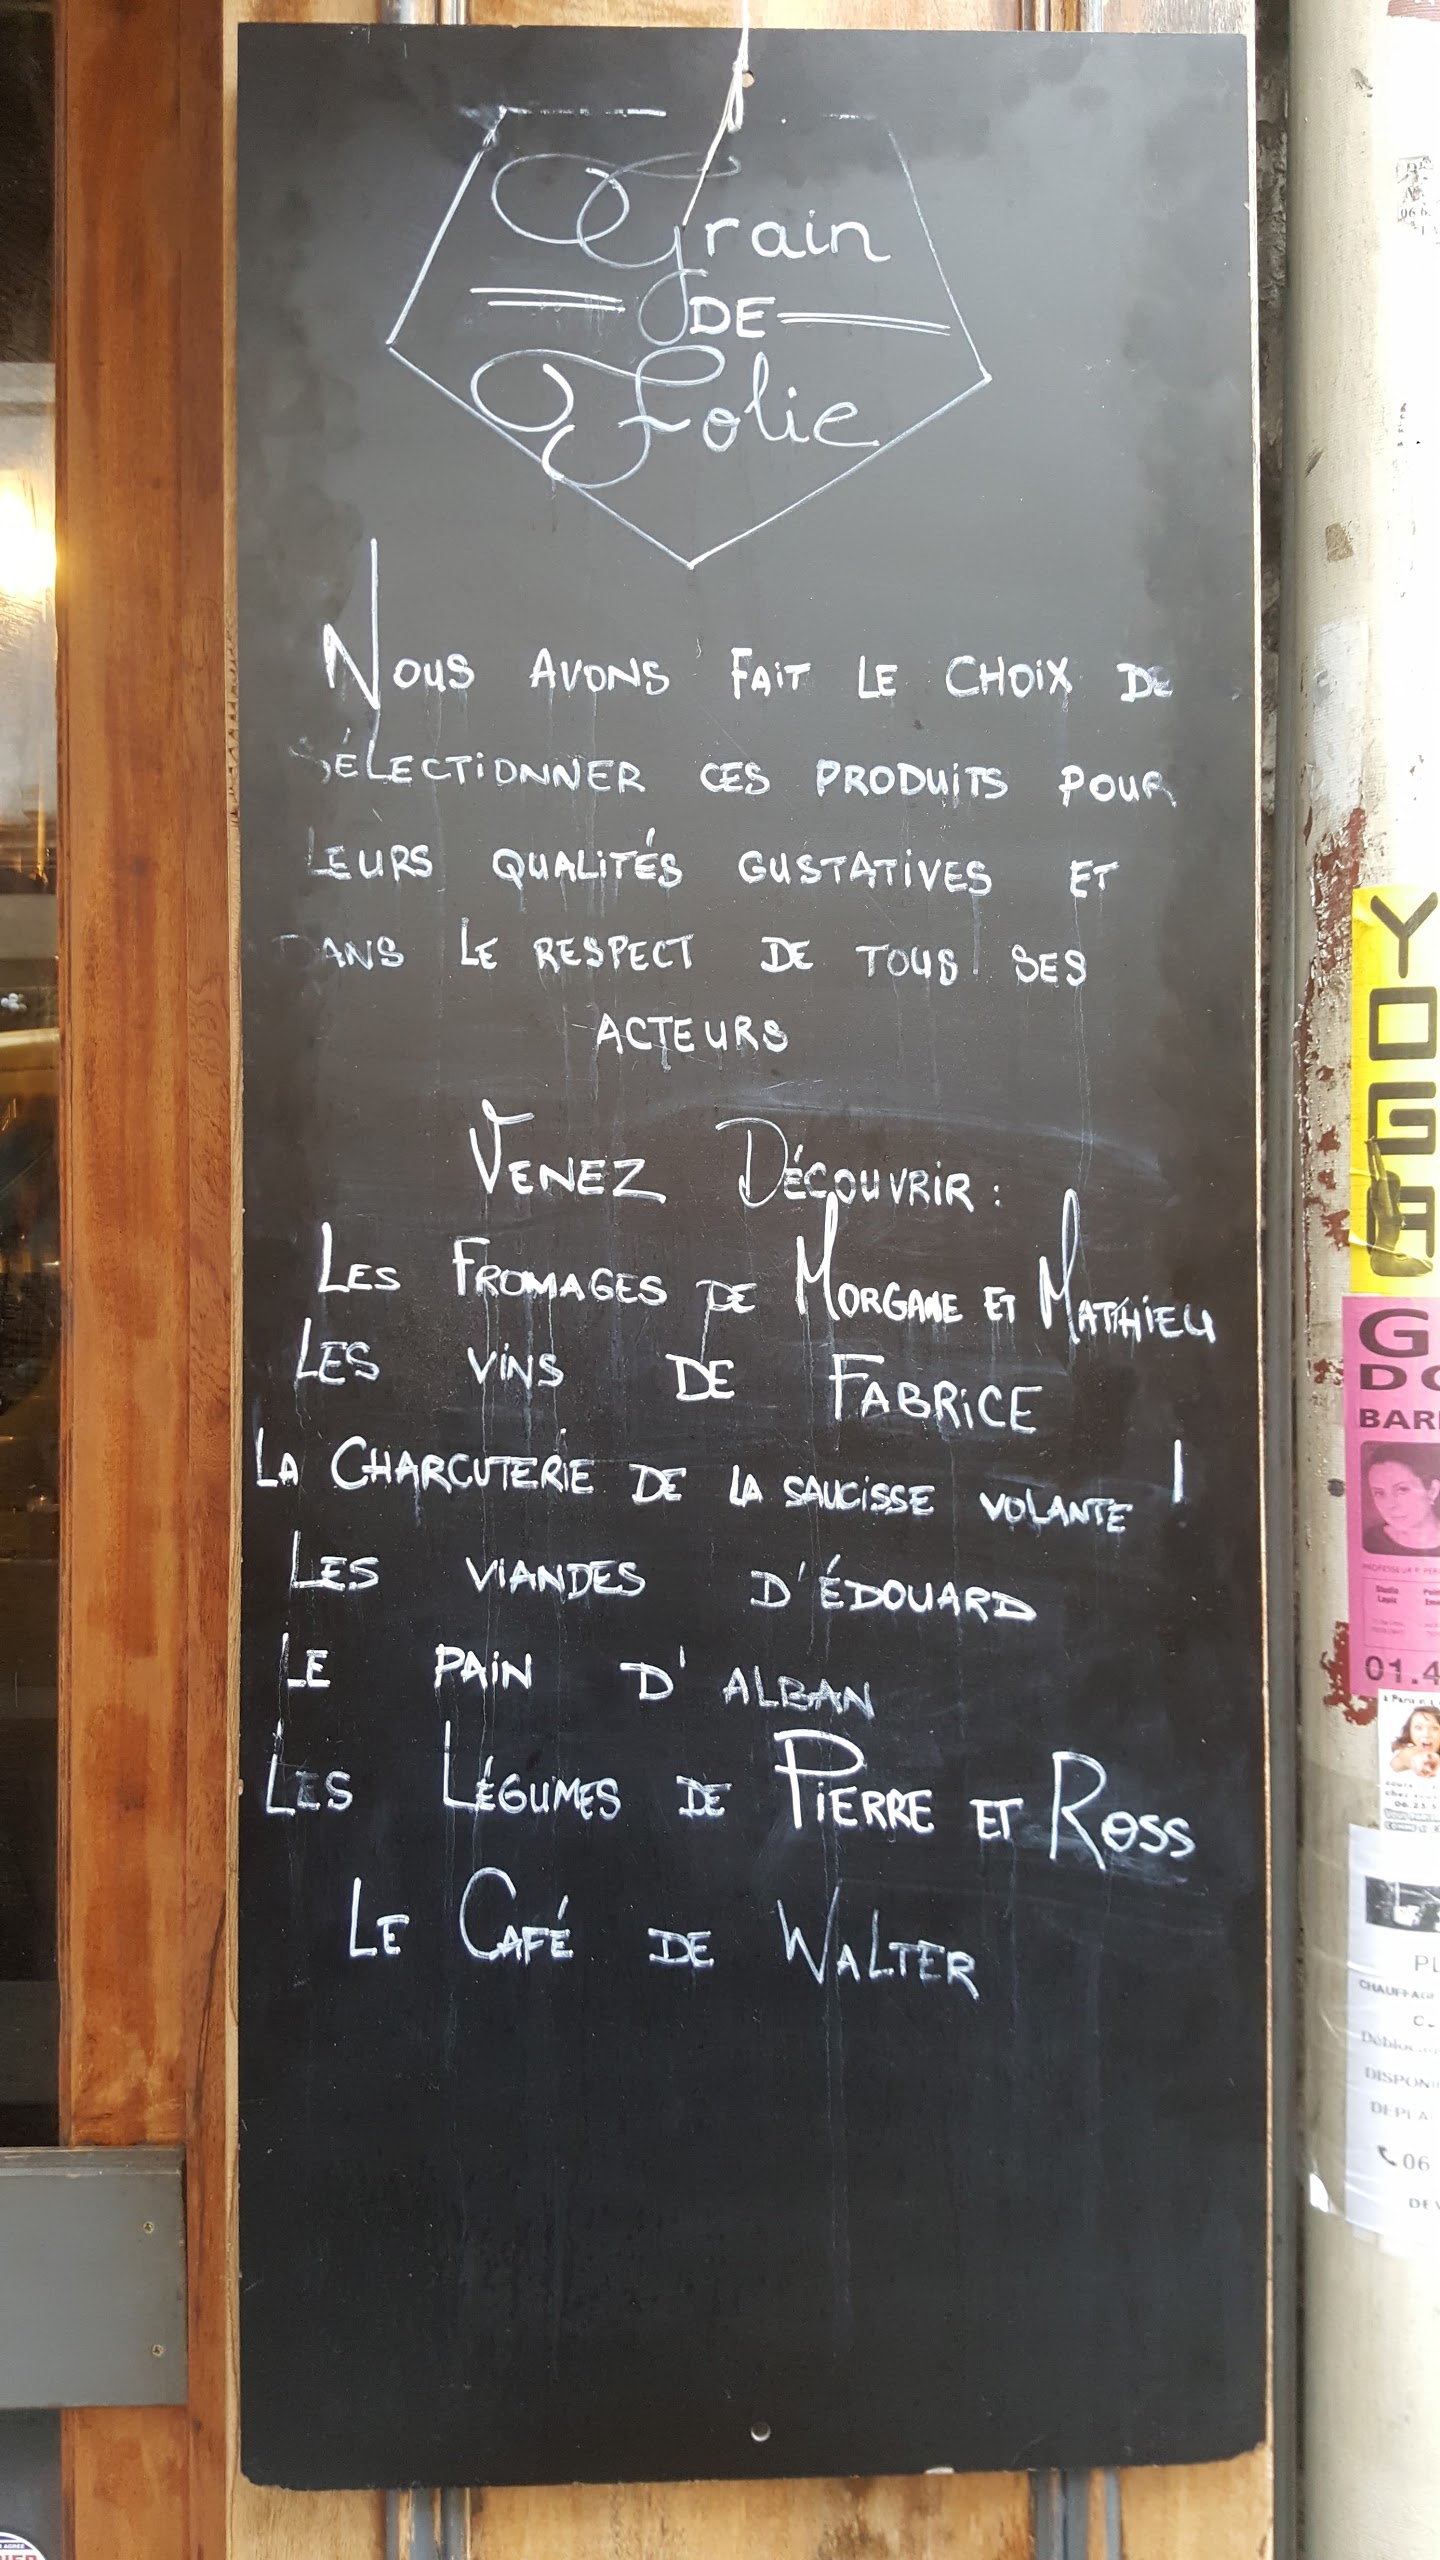 Grain
DE
Folie
NOUS AVONS FAIT LE CHOIX DE
SÉLECTIONNER CES PRODUITS POUR
LEURS QUALITÉS GUSTATIVES ET
DANS LE RESPECT DE TOUS SES
ACTEURS
VENEZ DÉCOUVRIR :
LES FROMAGES DE MORGANE ET MATTHIEU
LES VINS DE FABRICE
LA CHARCUTERIE DE LA SAUCISSE VOLANTE !
LES VIANDES D'ÉDOUARD
LE PAIN D'ALBAN
LES LÉGUMES DE PIERRE ET ROSS
LE CAFÉ DE WALTER
YOGA
G
DO
BAR
PROFESSEUR
Studio
01.4
à Paris
06.23
PL
CHAUFFAG
DISPON
DEPLA
06
DEV